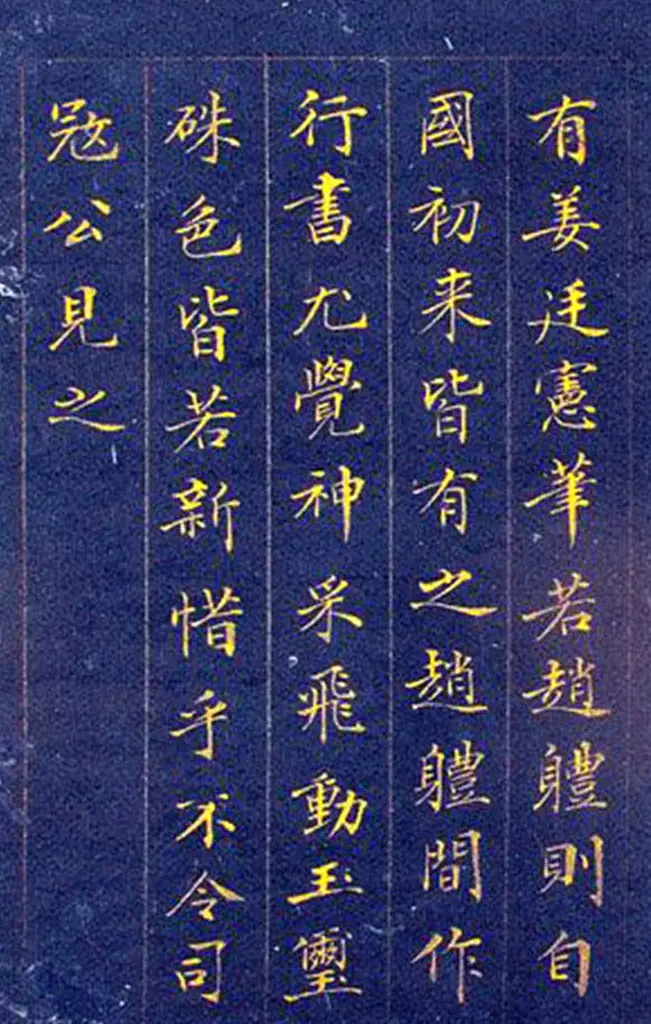 有姜廷憲筆若趙軆則自
國初来皆有之趙軆間作
行書尤覺神采飛動玉璽
硃色皆若新惜乎不令司
宼公見之